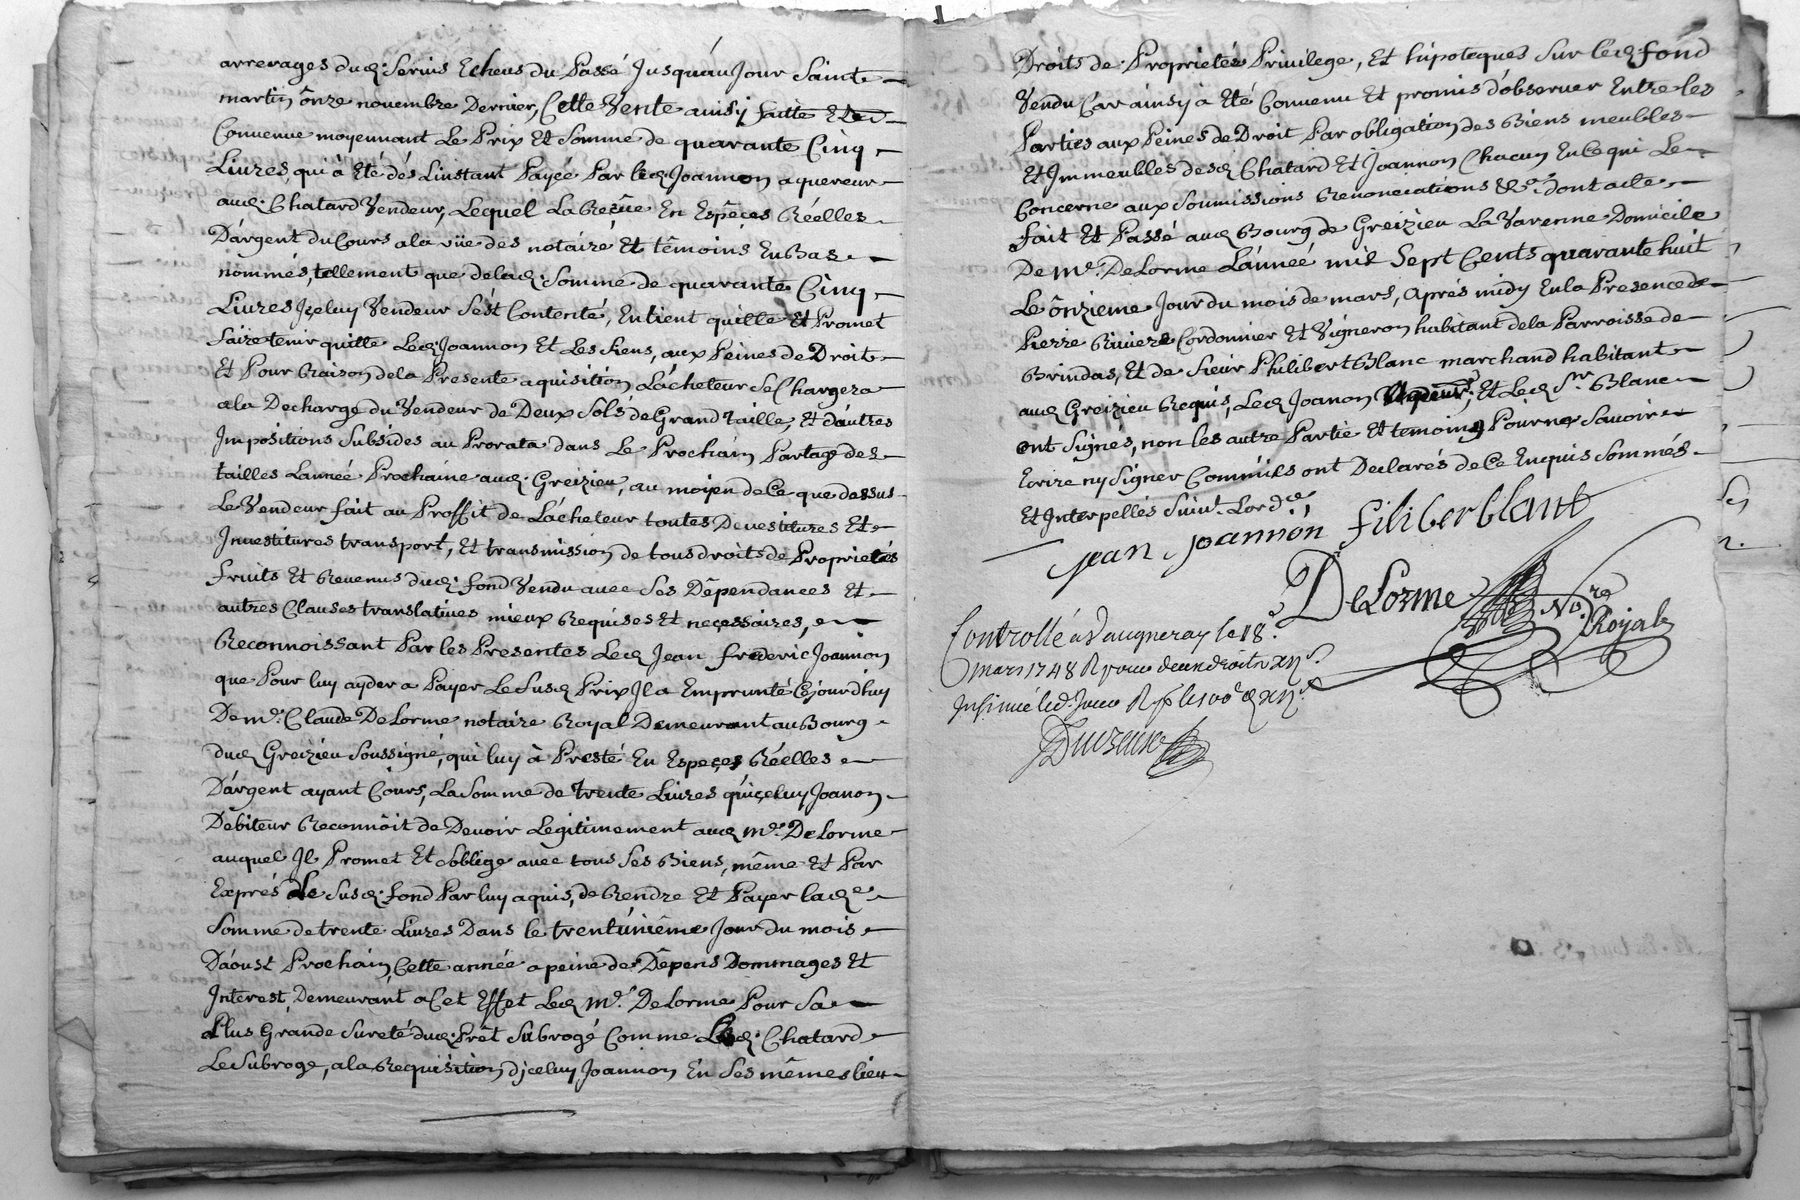 arrerages dud. Servis Echeus du Passé Jusquáu Jour Saint
martin ônze novembre Dernier, Cette Vente ainsÿ faitte Et
Convenue moyennant Le Prix Et Somme de quarante Cinq
Livres, qui à Eté dés L'instant Payée Par led. Joannon aquereur
aud. Chatard Vendeur, Lequel La Reçûe En Espêces Réelles
D'argent du Cours a la vüe des notaire Et têmoins En Bas
nommés, tellement que de lad. Somme de quarante Cinq
Livres Jceluy Vendeur S'est Contenté, En tient quitte Et Promet
faire tenir quitte Led. Joannon Et Les Siens, aux Peines de Droit
Et Pour Raison de la Presente aquisition L'ácheteur Se Chargera
a la Decharge du Vendeur de Deux Sols de Grand taille, Et d'autres
Impositions Subsides au Prorata dans Le Prochain Partage des
tailles L'année Prochaine aud. Greizieu, au moÿen de Ce que dessus
Le Vendeur fait au Proffit de L'ácheteur toutes Devestitures Et
Jnvestitures transport, Et transmission de tous droits de Proprietés
fruits Et Revenus dud. fond Vendu avec Ses Dêpendances Et
autres Clauses translatives mieux Requises Et necessaires,
Reconnoissant Par les Presentes Led. Jean frederic Joannon
que Pour luy ayder a Payer Le Susd. Prix Jl a Emprunté Cejourd'huy
De me. Claude DeLorme notaire Royal Demeurant au Bourg
dud. Greizieu Soussigné, qui luy à Presté En Especes Réelles
D'argent ayant Cours, La Somme de trente Livres qu'iceluy Joanon
Debiteur Reconnôit de Devoir Legitimement aud. me. DeLorme
auquel Jl Promet Et S'oblige avec tous Ses Biens, même Et Par
Exprés le Susd. fond Par luy aquis, de Rendre Et Payer lade.
Somme de trente Livres Dans le trentúniême Jour du mois
D'áoust Prochain, Cette année a peine de Dêpens Dommages Et
Jnterest, Demeurant a Cet Effet Led. me. DeLorme Pour Sa
Plus Grande Sureté dud. Prêt Subrogé Comme Led. Chatard
Le Subroge, a la Requisition d'jceluy Joannon En Ses mêmes lieu
Droits de Proprietés Privilege, Et hipoteques Sur led. fond
Vendu Car ainsy à Eté Convenu Et promis d'observer Entre les
Parties aux Peines de Droit Par obligation des Biens meubles
Et Jmmeubles desd. Chatard Et Joannon Chacun En Ce qui Le
Concerne aux Soumissions Renonciations &a. Dont acte
fait Et Passé aud. Bourg de Greizieu La Varenne Domicile
De me. DeLorme L'année mil Sept Cents quarante huit
Le ônzieme Jour du mois de mars, Aprés midy En la Presence de
Pierre Riviere Cordonnier Et Vigneron habitant de la Parroisse de
Brindas, Et de Sieur Philibert Blanc marchand habitant
aud. Greizieu Requis, Led. Joanon Et Led. Sr. Blanc
ont Signés, non les autre Partie Et temoing Pour ne Savoir
Ecrire ny Signer Comm'ils ont Declarés de Ce Enquis Sommés
Et Interpellés Suivt. Lordce.
jean joannon filiber blanc
DeLorme Nore. Royal
Controllé a Vaugneray le 18e.
mars 1748